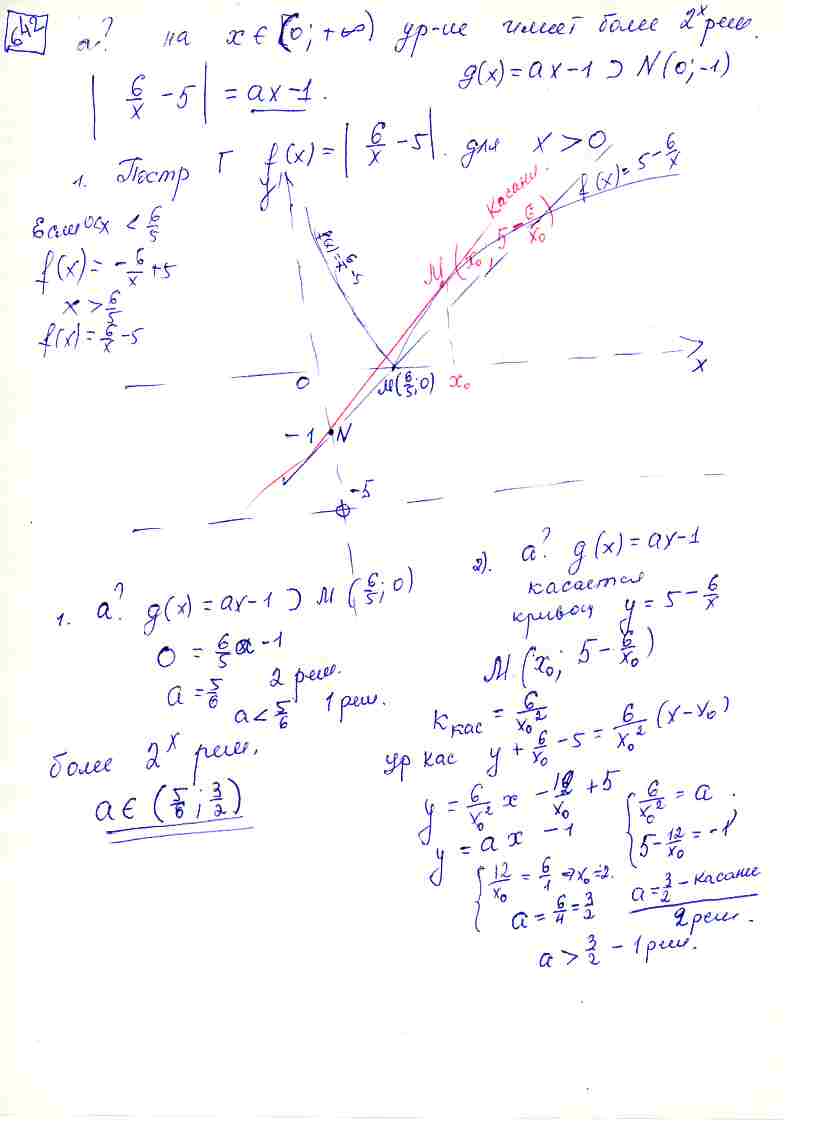 642 a? на x ∈ (0; +∞) ур-ие имеет более 2ˣ реш.
| 6/x - 5 | = ax - 1.
g(x) = ax - 1 ⊃ N(0; -1)
1. Постр Г f(x) = | 6/x - 5 |. для x > 0
x < 6/5
f(x) = - 6/x + 5
x > 6/5
f(x) = 6/x - 5
y
f(x) = 6/x - 5
касан.
f(x) = 5 - 6/x
M (x₀, 5 - 6/x₀)
0
M(6/5; 0)
x₀
x
-1 N
-5
1. a? g(x) = ax - 1 ⊃ M (6/5; 0)
0 = 6/5 a - 1
a = 5/6 2 реш.
a < 5/6 1 реш.
более 2ˣ реш.
a ∈ (5/6; 3/2)
2). a? g(x) = ax - 1
касается
кривой y = 5 - 6/x
M (x₀; 5 - 6/x₀)
K кас = 6/x₀²
ур кас y + 6/x₀ - 5 = 6/x₀² (x - x₀)
y = 6/x₀² x - 12/x₀ + 5
y = ax - 1
{ 6/x₀² = a ;
5 - 12/x₀ = -1
{ 12/x₀ = 6/1 ⇒ x₀ = 2.
a = 6/4 = 3/2
a = 3/2 - касание
2 реш.
a > 3/2 - 1 реш.